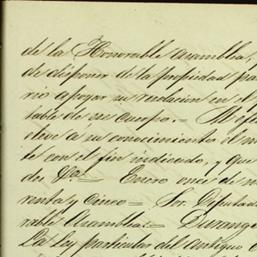 de la Honorable asamblea,
de disponer de la propiedad pa
rio apoyar su resolucion en el
table de su cuerpo. Al efe
eleve a su conocimiento el m
te con el fin indicado, y que
de Enero once de
renta y cinco Sor. Diputad
rable Asamblea. Durango
La ley particular del antiguo